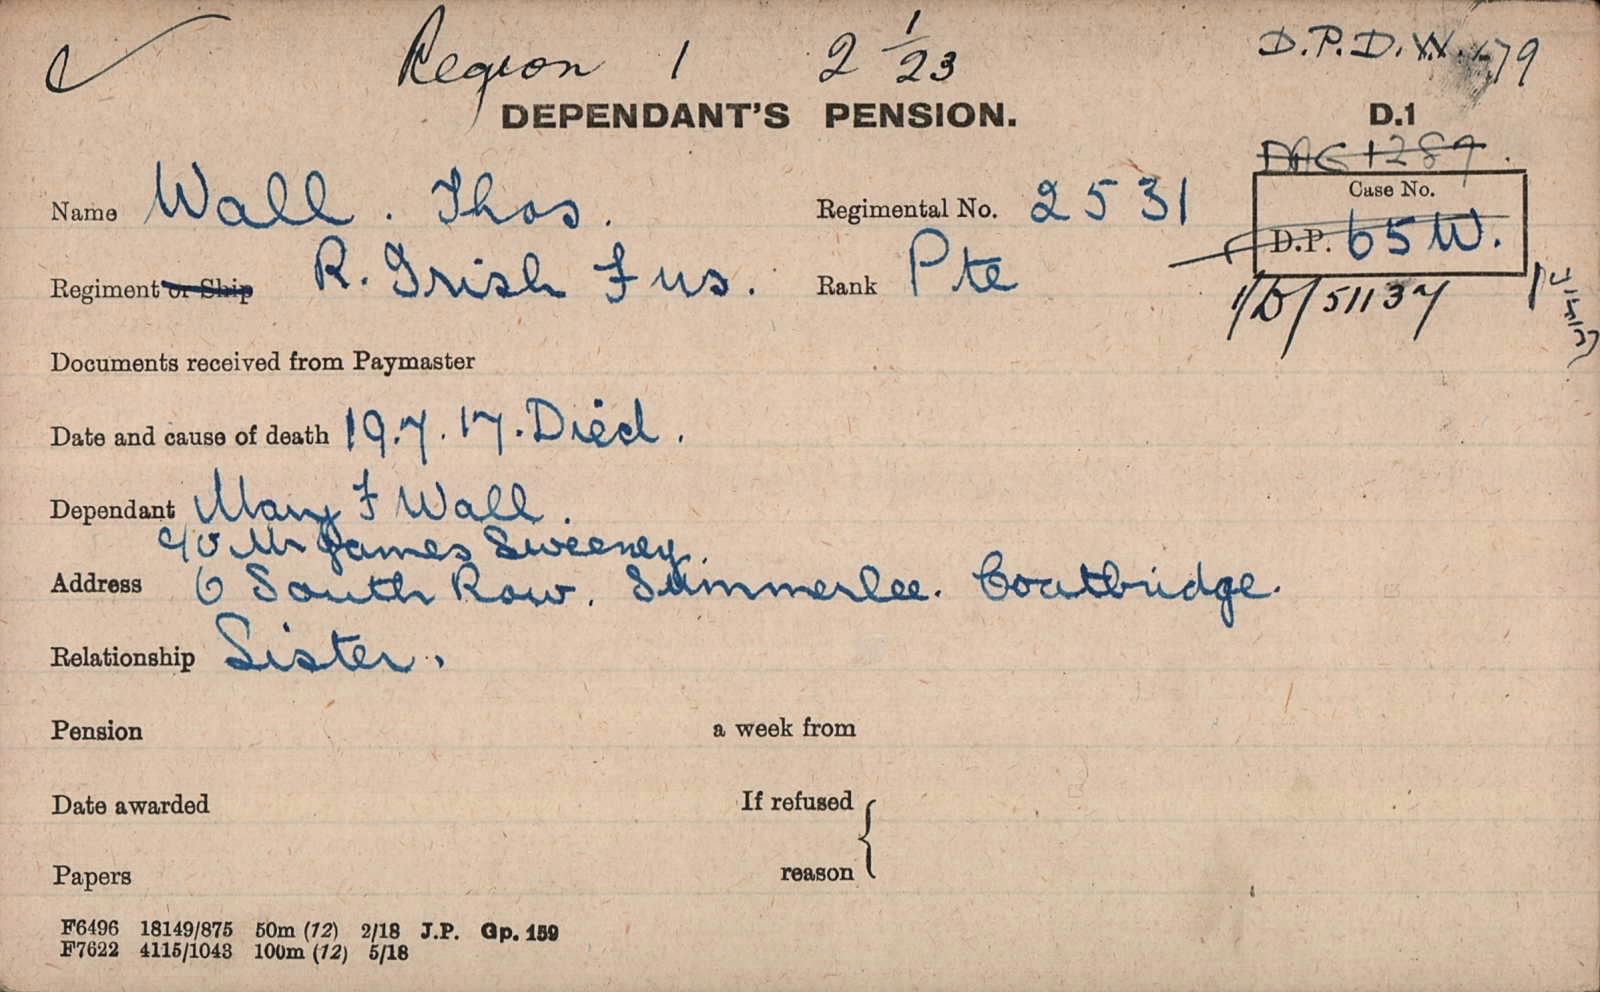 Region 1 2 1/23 D.P.D.W. 179
DEPENDANT'S PENSION. D.1
DAG 1289.
Case No.
Name Wall. Thos. Regimental No. 2531
D.P. 65W.
Regiment or Ship R. Irish Fus. Rank Pte
1/D/51137
Documents received from Paymaster
Date and cause of death 19.7.17. Died.
Dependant Mary F Wall.
c/o Mr James Sweeney.
Address 6 South Row. Summerlee. Coatbridge.
Relationship Sister.
Pension a week from
Date awarded If refused
Papers reason
F6496 18149/875 50m (12) 2/18 J.P. Gp. 159
F7622 4115/1043 100m (12) 5/18